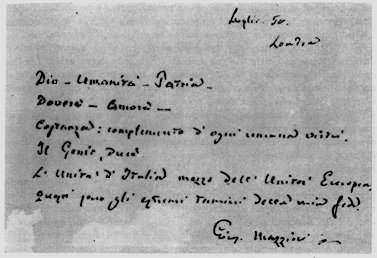 Luglio. 50.
Londra
Dio - Umanità - Patria -
Dovere - Amore -
Costanza: complemento d'ogni umana virtù.
Il Genio, duce.
L'Unità d'Italia mezzo dell'Unità Europea.
Questi sono gli estremi termini della mia fede.
Gius. Mazzini